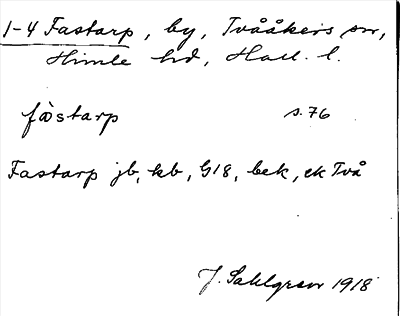 1-4 Fastarp, by, Tvååkers sn,
Himle hd, Hall. l.
fàstarp s. 76
Fastarp jb, kb, G18, bek, ek Två
J. Sahlgren 1918